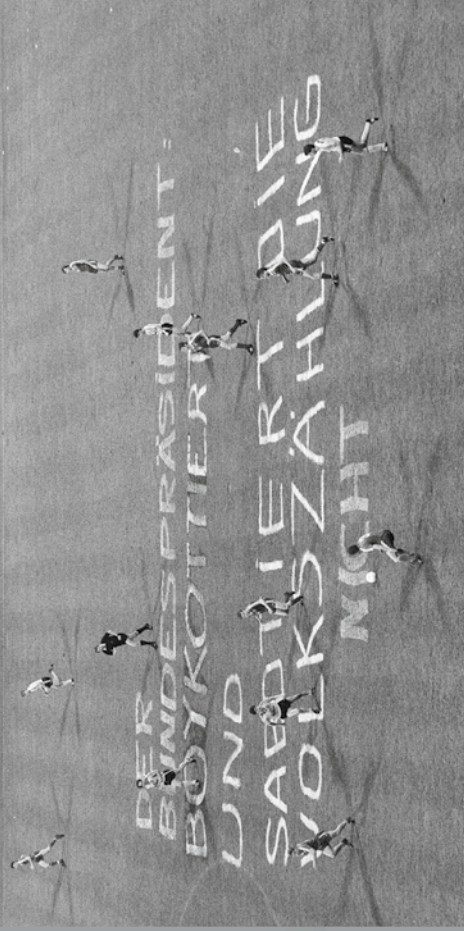 DER
BUNDESPRÄSIDENT:
BOYKOTTIERT
UND
SABOTIERT DIE
VOLKSZÄHLUNG
NICHT